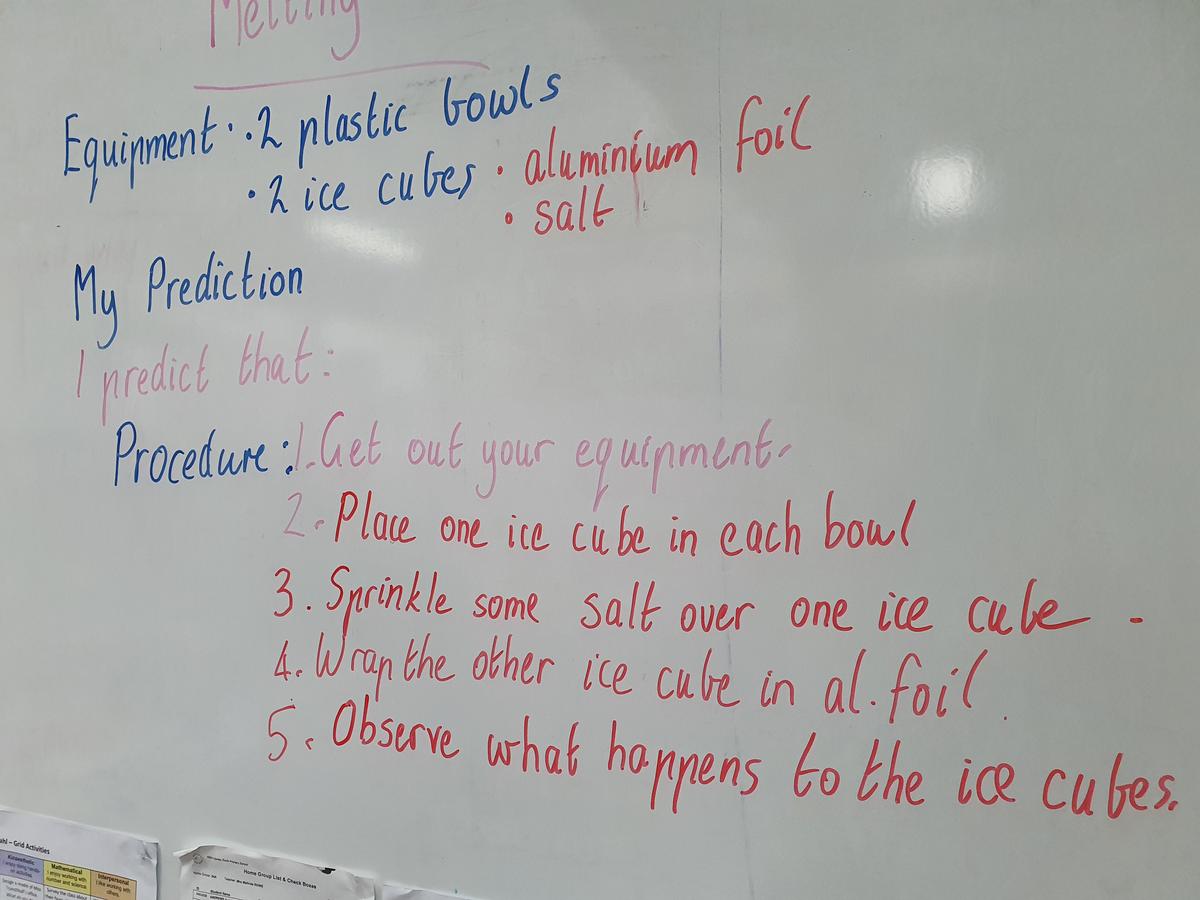 Melting
Equipment · · 2 plastic bowls
· 2 ice cubes · aluminium foil
· salt
My Prediction
I predict that:
Procedure : 1. Get out your equipment.
2. Place one ice cube in each bowl
3. Sprinkle some salt over one ice cube.
4. Wrap the other ice cube in al. foil.
5. Observe what happens to the ice cubes.
ahl – Grid Activities
Kinaesthetic
I enjoy doing hands-on activities.
Mathematical
I enjoy working with number and science.
Interpersonal
I like working with others.
Home Group List & Check Boxes